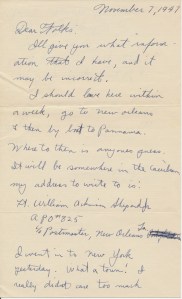 November 7, 1941
Dear Folks:
I'll give you what infor-
ation that I have, and it
may be incorrect.
I should leave here within
a week, go to new orleans
& then by boat to Pannama.
Where to then is anyones guess.
It will be somewhere in the
my address to write to is:
Lt. William
A P O # 825
c/o Postmaster, New Orleans La
I went in to New York
yesterday. What a town! I
really didnt care too much